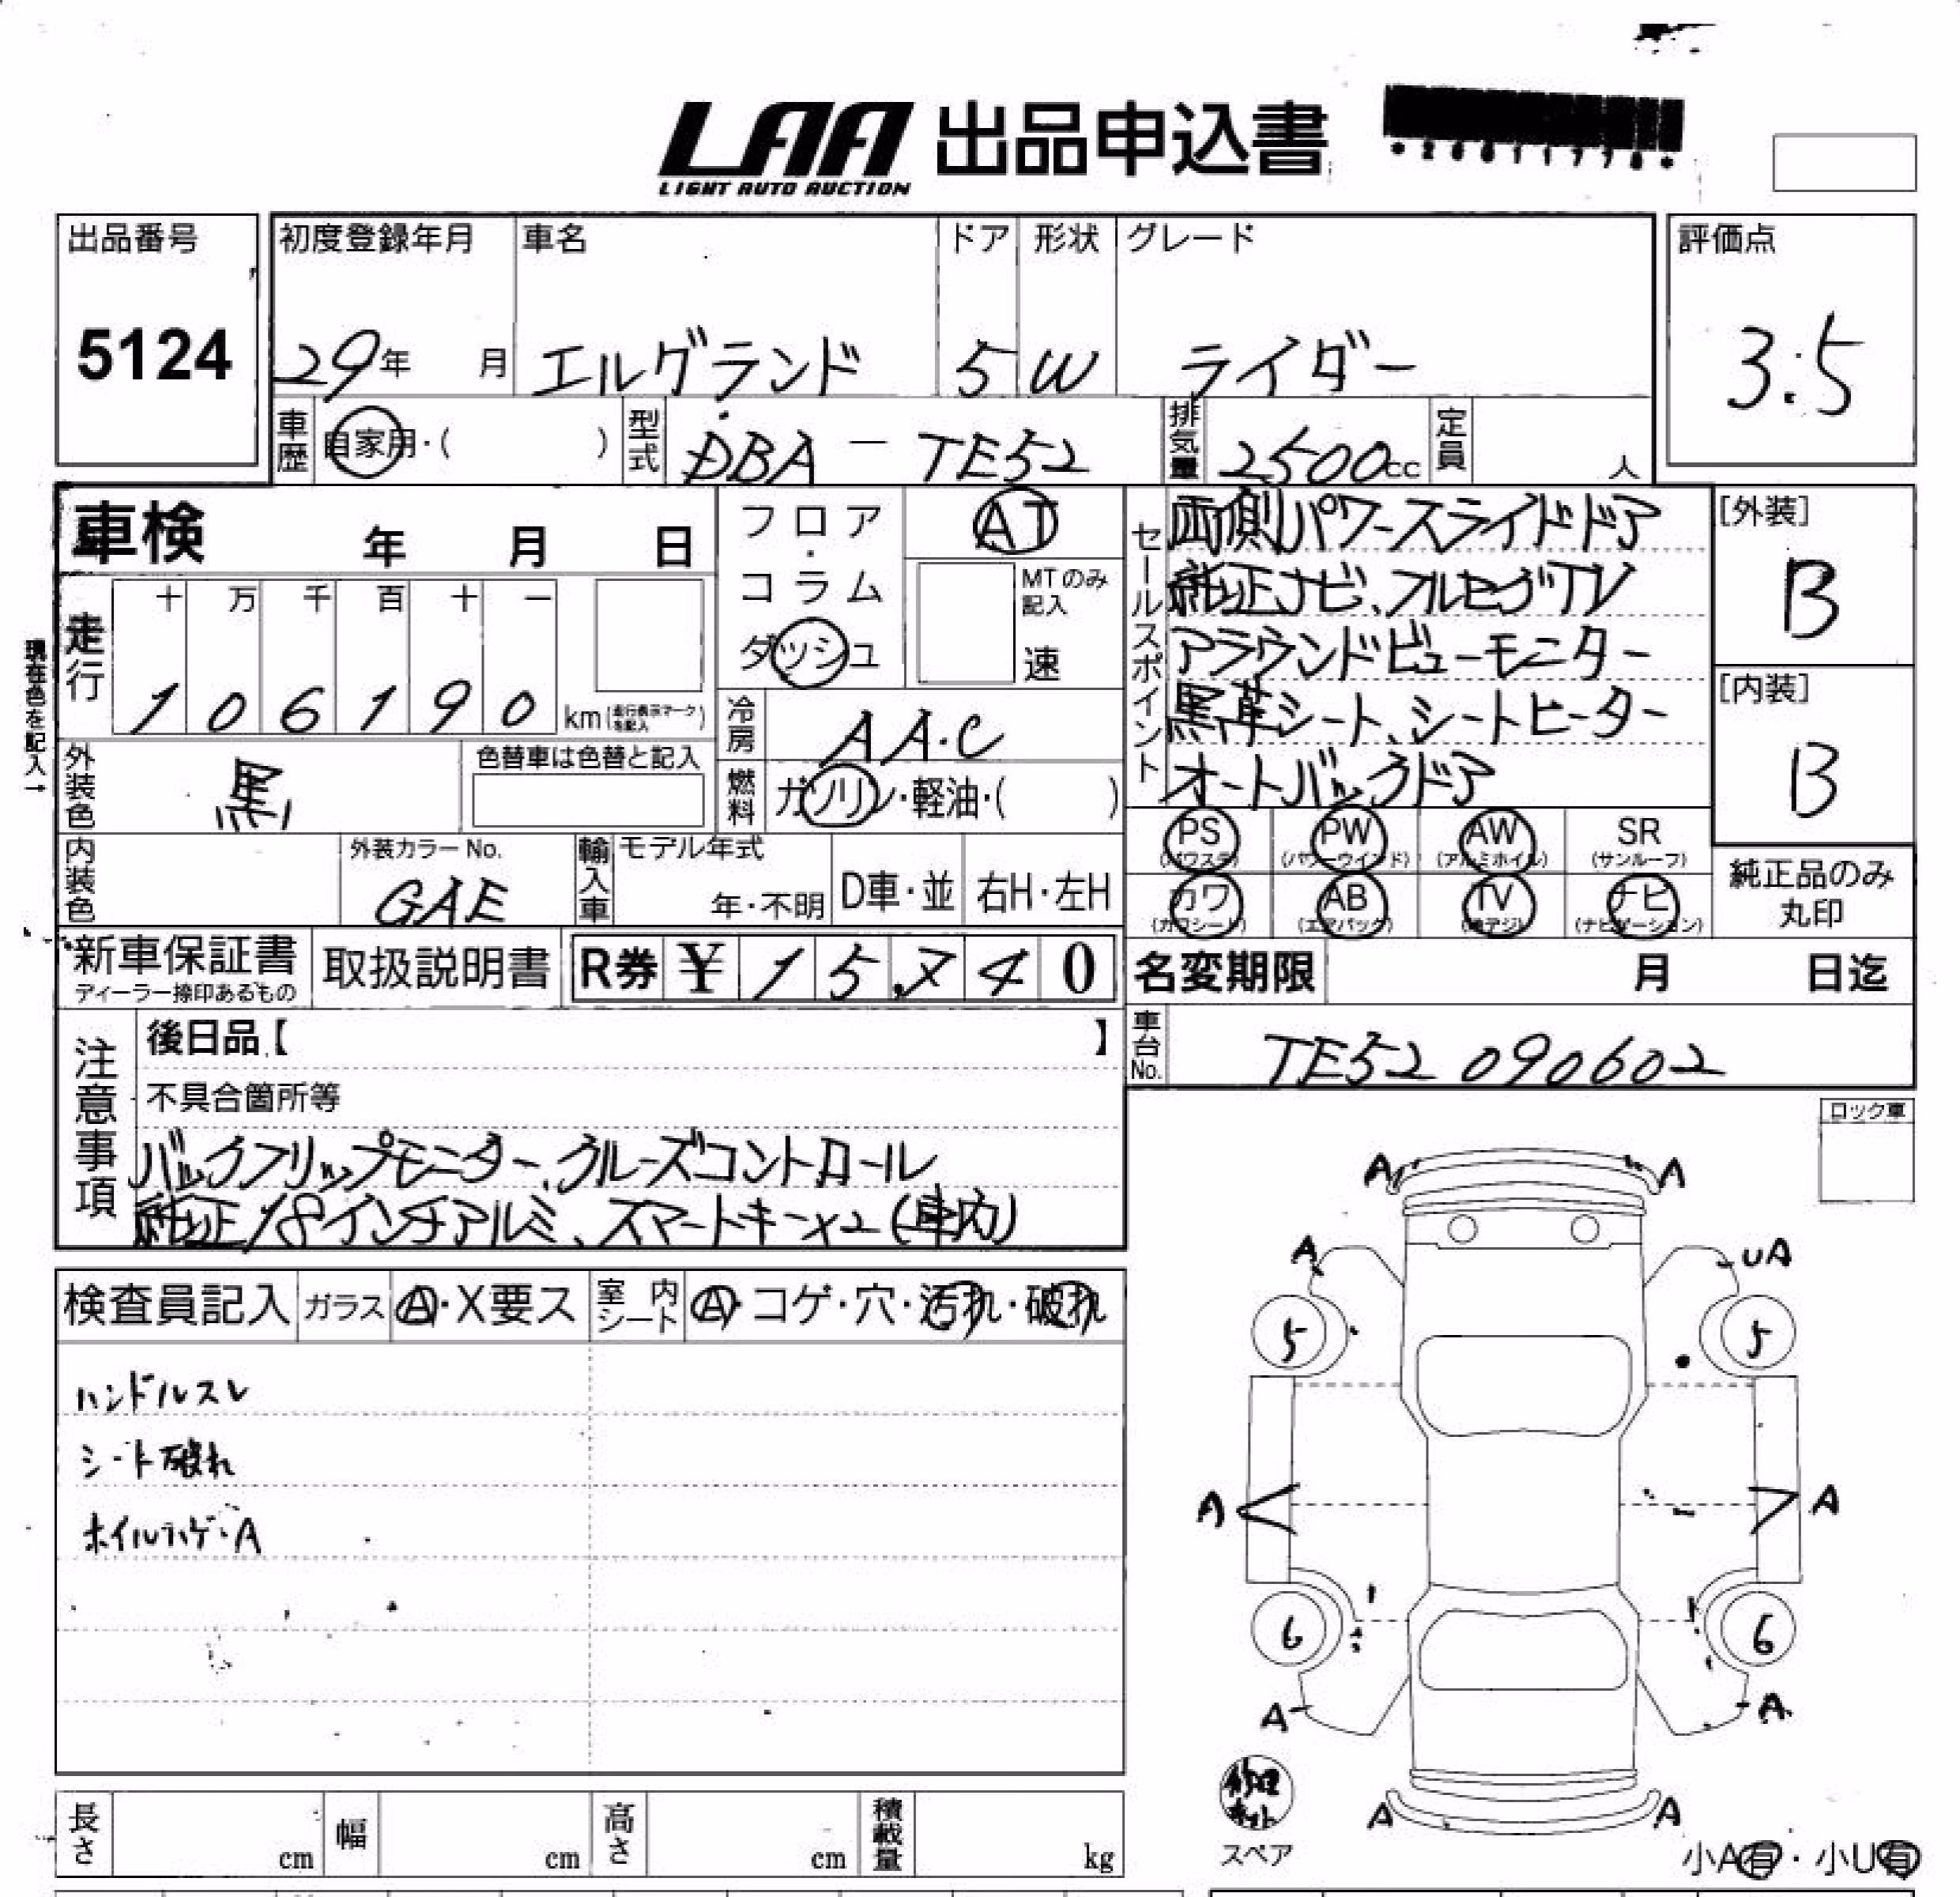 LAA 出品申込書
LIGHT AUTO AUCTION
出品番号
5124
初度登録年月
29年 月
車名
エルグランド
ドア
5
形状
W
グレード
ライダー
評価点
3.5
車歴
自家用・( )
型式
DBA - TE52
排気量
2500cc
定員
人
車検 年 月 日
フロア・コラム
ダッシュ
AT
MTのみ記入
速
セールスポイント
両側パワースライドドア
純正ナビ、フルセグTV
アラウンドビューモニター
黒革シート、シートヒーター
オートバックドア
[外装]
B
[内装]
B
現在色を記入→
走行
十 万 千 百 十 一
1 0 6 1 9 0 km (走行表示マークを記入)
冷房
AA.C
外装色
黒
色替車は色替と記入
燃料
ガソリン・軽油・( )
PS (パワステ)
PW (パワーウインド)
AW (アルミホイル)
SR (サンルーフ)
カワ (カワシート)
AB (エアバック)
TV (地デジ)
ナビ (ナビゲーション)
純正品のみ丸印
内装色
外装カラーNo.
GAE
輸入車
モデル年式
年・不明
D車・並
右H・左H
新車保証書
ディーラー捺印あるもの
取扱説明書
R券 ¥ 15,740
名変期限 月 日迄
車台No.
TE52 090602
注意事項
後日品【 】
不具合箇所等
バックフリップモニター、クルーズコントロール
純正18インチアルミ、スマートキー×2(車内)
ロック車
検査員記入
ガラス
A・X要ス
室内シート
A・コゲ・穴・汚れ・破れ
ハンドルスレ
シート破れ
ホイルハゲ・A
A A
A UA
5 5
A A
6 6
A A
A A
修理キット
スペア
小A有・小U有
長さ cm
幅 cm
高さ cm
積載量 kg